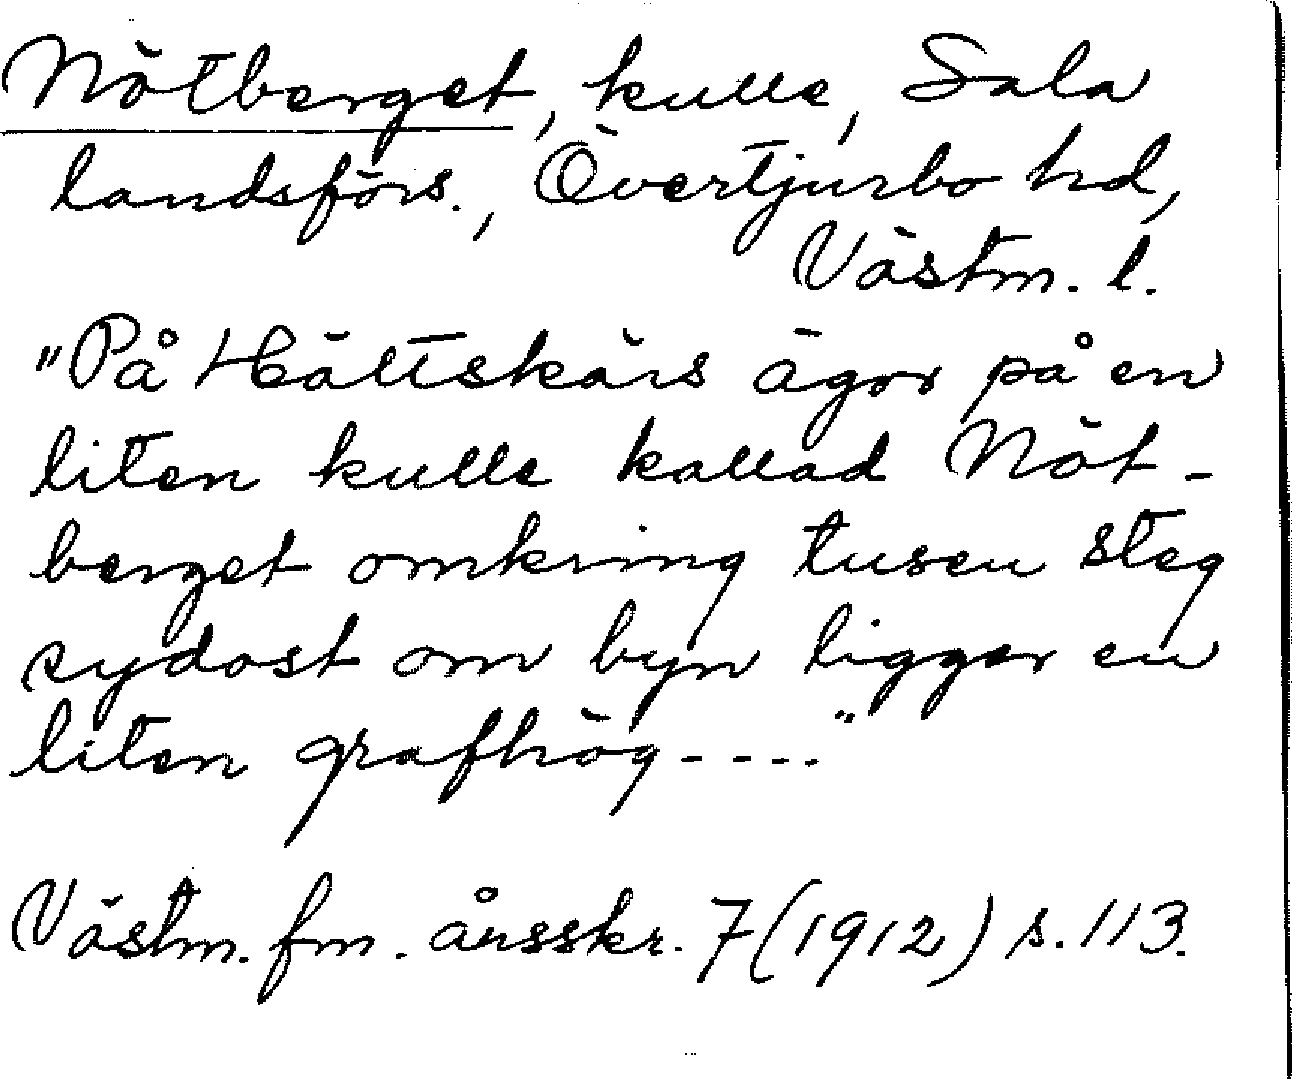 Nötberget, kulle, Sala
landsförs., Övertjurbo hd,
Västm. l.
"På Hällskärs ägor på en
liten kulle kallad Nöt-
berget omkring tusen steg
sydost om byn ligger en
liten grafhög----"
Västm. fm. årsskr. 7 (1912) s. 113.